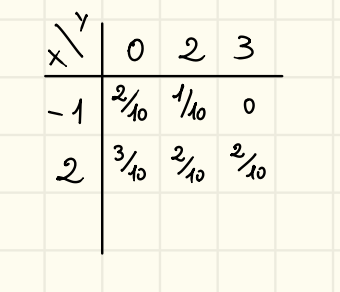 X\Y 0 2 3
-1 2/10 1/10 0
2 3/10 2/10 2/10